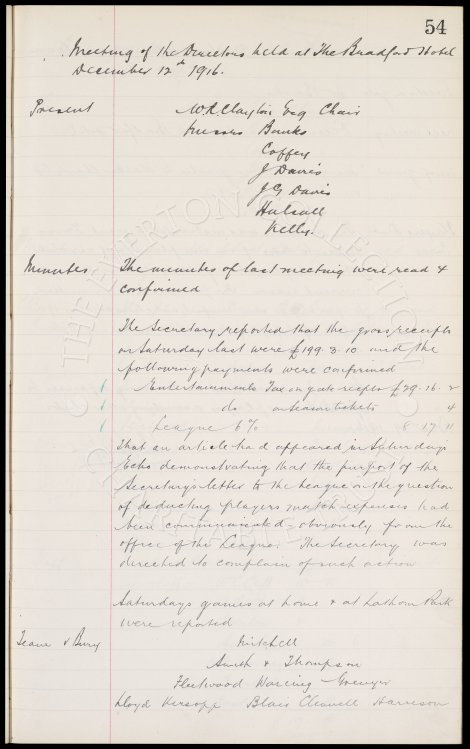 54
Meeting of the Directors held at The Bradford Hotel
December 12th 1916.
Present W R Clayton Esq Chair
Messrs Banks
Coffey
J Davies
J G Davies
Halsall
Kelly.
Minutes The minutes of last meeting were read &
confirmed
The Secretary reported that the gross receipts
on Saturday last were £199.3.10 and the
following payments were confirmed
Entertainments Tax on gate receipts £29.16.2
do on season tickets 4
League 6% 8 17 11
That an article had appeared in Saturdays
Echo demonstrating that the purport of the
Secretary's letter to the League on the question
of deducting players match expenses had
been communicated - obviously from the
office of the League. The Secretary was
directed to complain of such action
Saturdays games at home & at Lathom Park
were reported
Team v Bury Mitchell
Smith & Thompson
Fleetwood Wareing Grenyer
Lloyd Kirsopp Blair Clennell Harrison
THE EVERTON COLLECTION